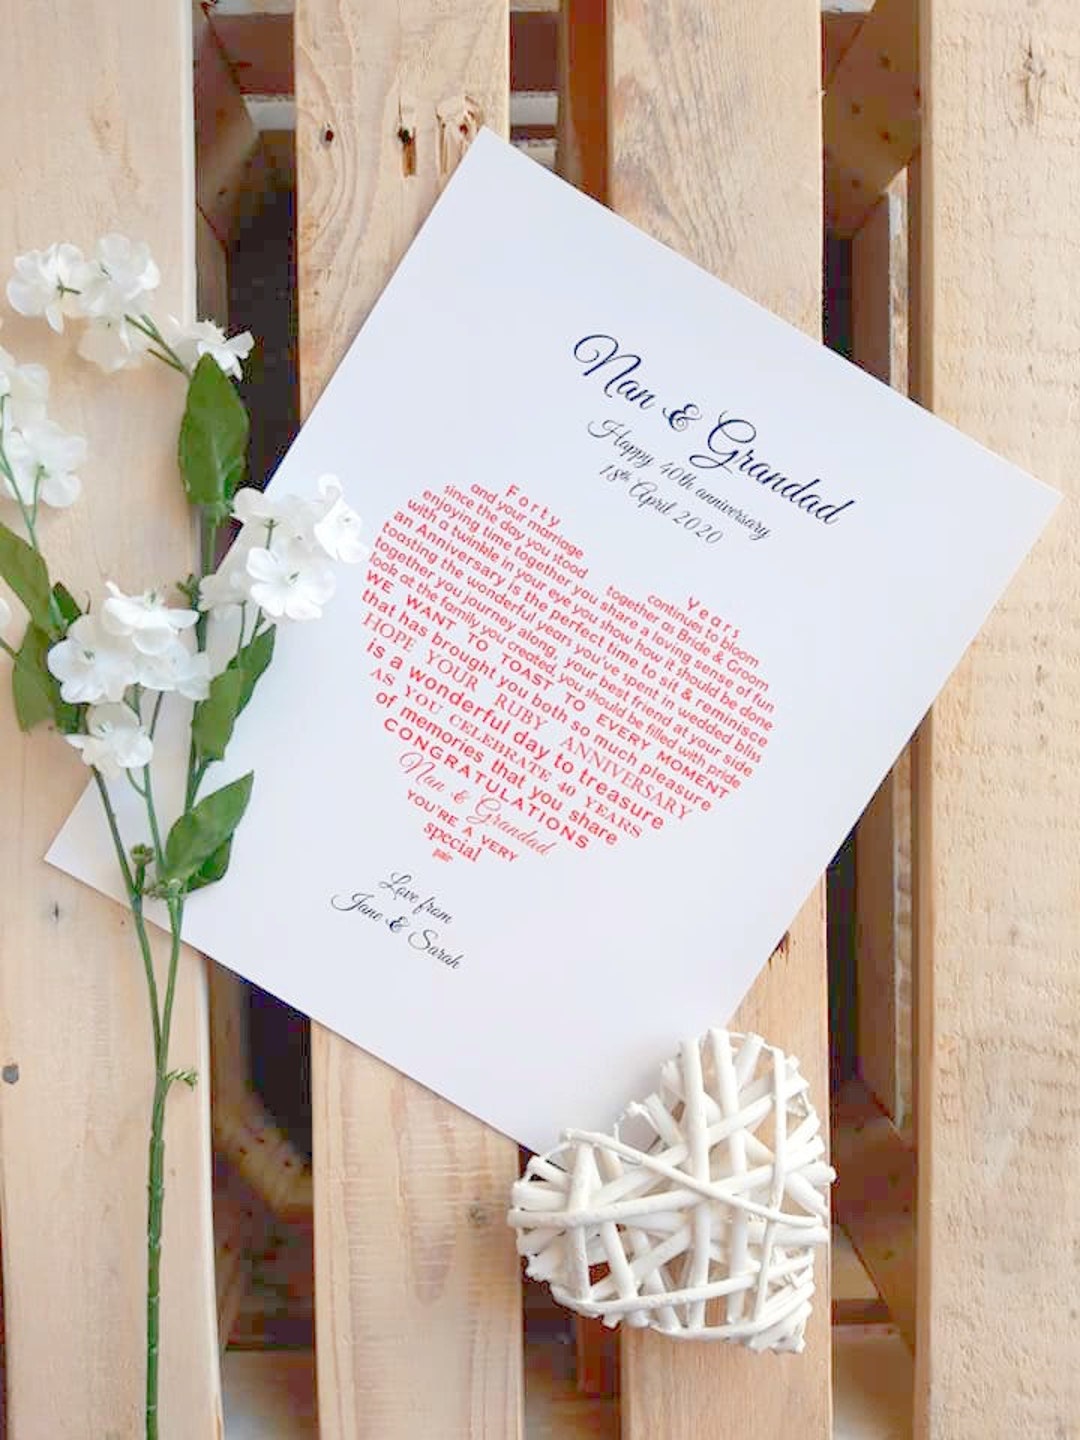 Nan & Grandad
Happy 40th anniversary
18th April 2020
Forty Years
and your marriage continues to bloom
since the day you stood together as Bride & Groom
enjoying time together you share a loving sense of fun
with a twinkle in your eye you show how it should be done
an Anniversary is the perfect time to sit & reminisce
toasting the wonderful years you've spent in wedded bliss
together you journey along, your best friend at your side
look at the family you created you should be filled with pride
WE WANT TO TOAST TO EVERY MOMENT
that has brought you both so much pleasure
HOPE YOUR RUBY ANNIVERSARY
is a wonderful day to treasure
AS YOU CELEBRATE 40 YEARS
of memories that you share
CONGRATULATIONS
Nan & Grandad
YOU'RE A VERY
special
pair
Love from
Jane & Sarah